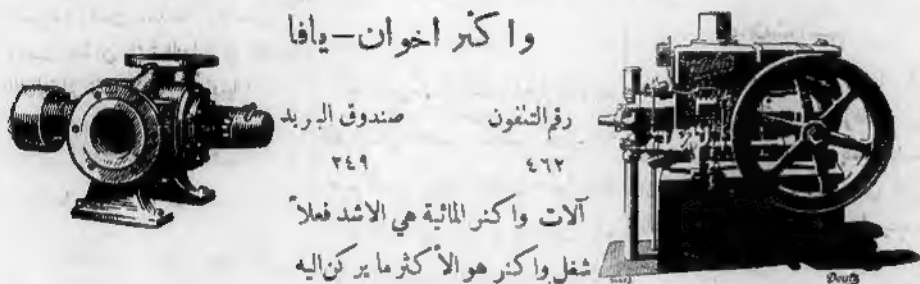 واكنر اخوان – يافا
رقم التلفون صندوق البريد
٤٦٢ ٣٤٩
آلات واكنر المائية هي الاشد فعلاً
شغل واكنر هو الأكثر ما يركن اليه
Deutz